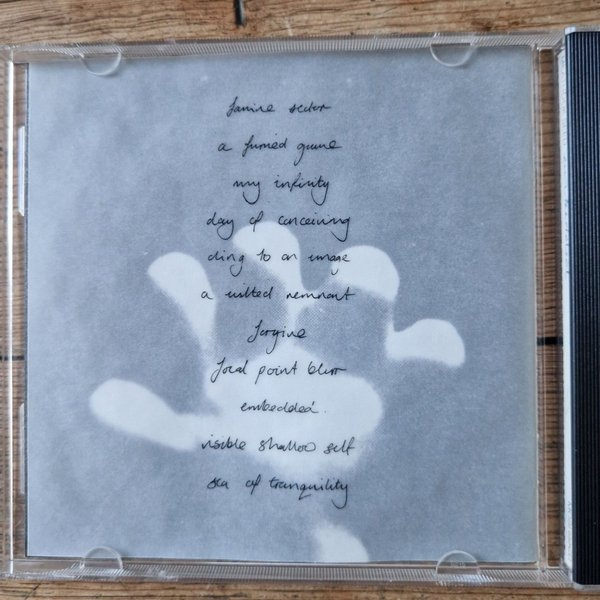 famine sector
a
my infinity
day of conceiving
cling to an image
a wilted remnant
forgive
focal point blur
embedded.
visible shallow self
sea of tranquility